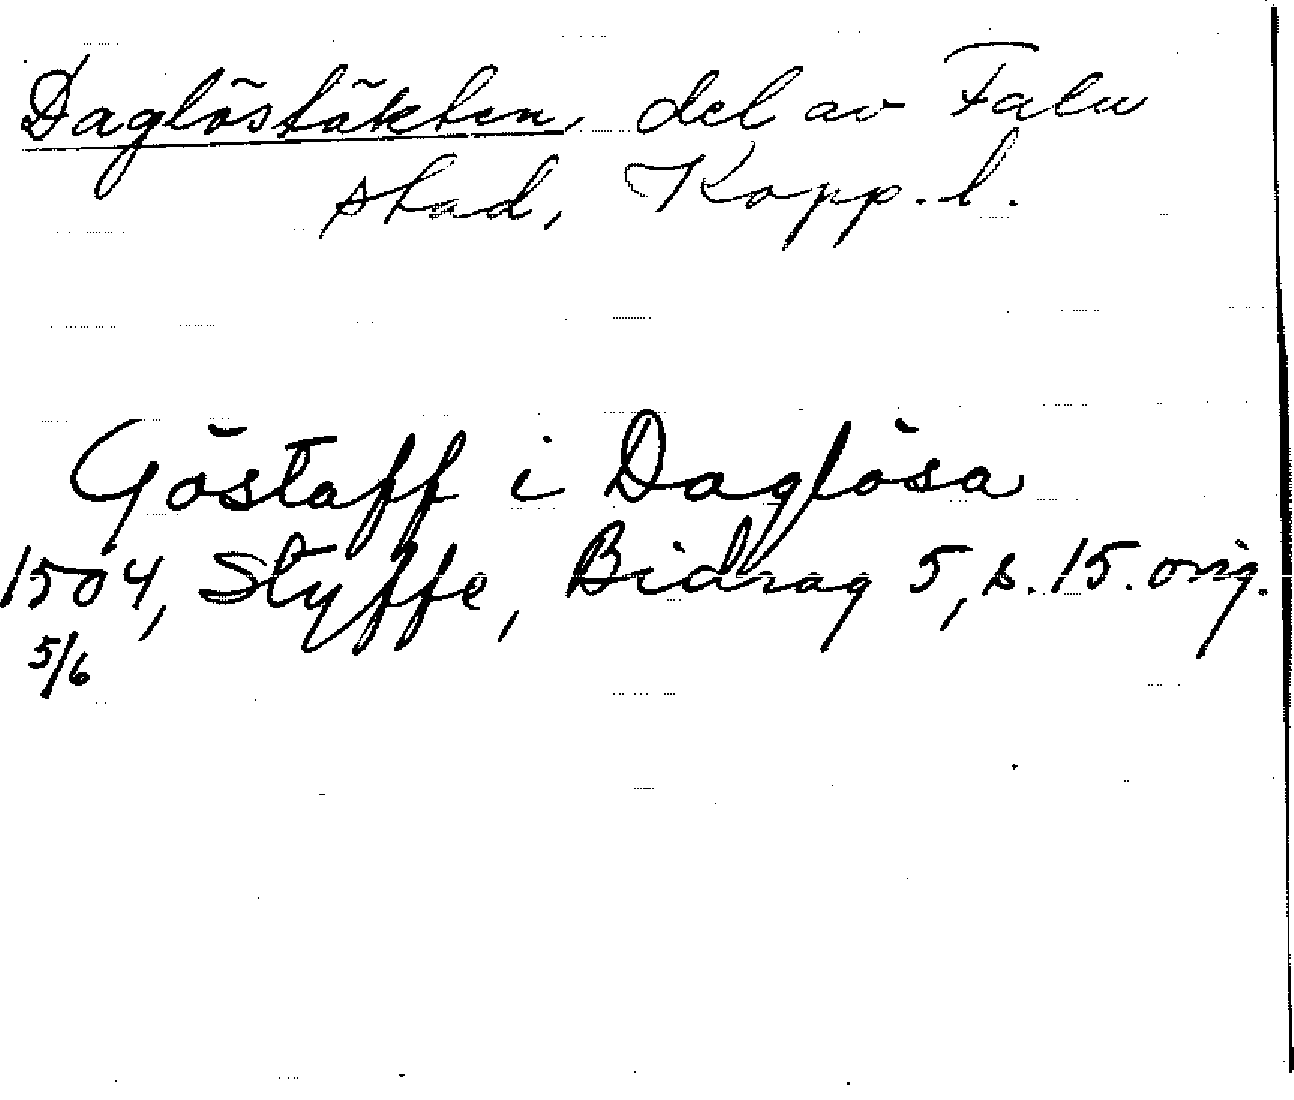 Daglöstäkten, del av Falu
stad, Kopp. l.
Göstaff i Daglösa
1504, Styffe, Bidrag 5, s. 15. orig.
5/6